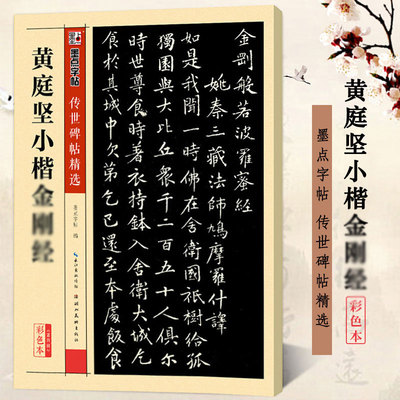 黄庭坚小楷金刚经
墨点字帖
传世碑帖精选
墨点字帖 编
湖北美术出版社
彩色本
金剛般若波羅蜜經
姚秦三藏法師鳩摩羅什譯
如是我聞一時佛在舍衛國祇樹給孤
獨園與大比丘眾千二百五十人俱尔
時世尊食時著衣持鉢入舍衛大城乞
食於其城中次第乞已還至本處飯食
黄庭坚小楷金刚经
彩色本
墨点字帖 传世碑帖精选
遠